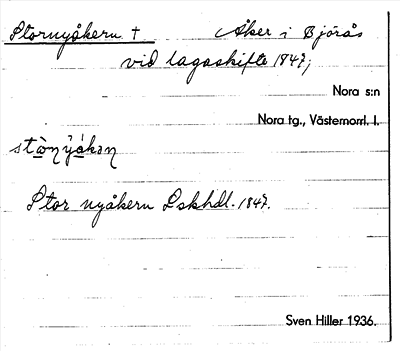 Stornyåkern † Åker i Bjärås
vid lagaskifte 1847;
Nora s:n
Nora tg., Västernorrl. l.
Stor nyåkern Lskhdl. 1847.
Sven Hiller 1936.